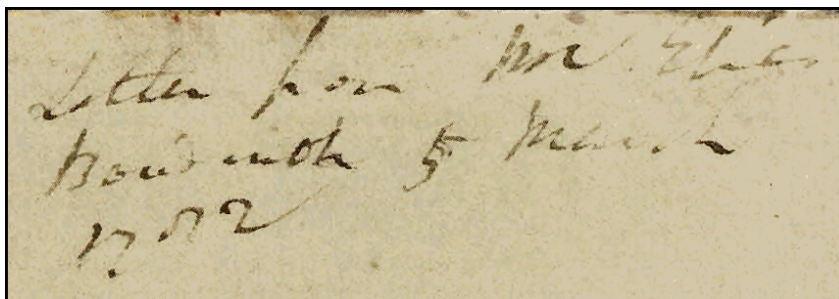 Letter from Mr Elias
Boudinoth 5 March
1782